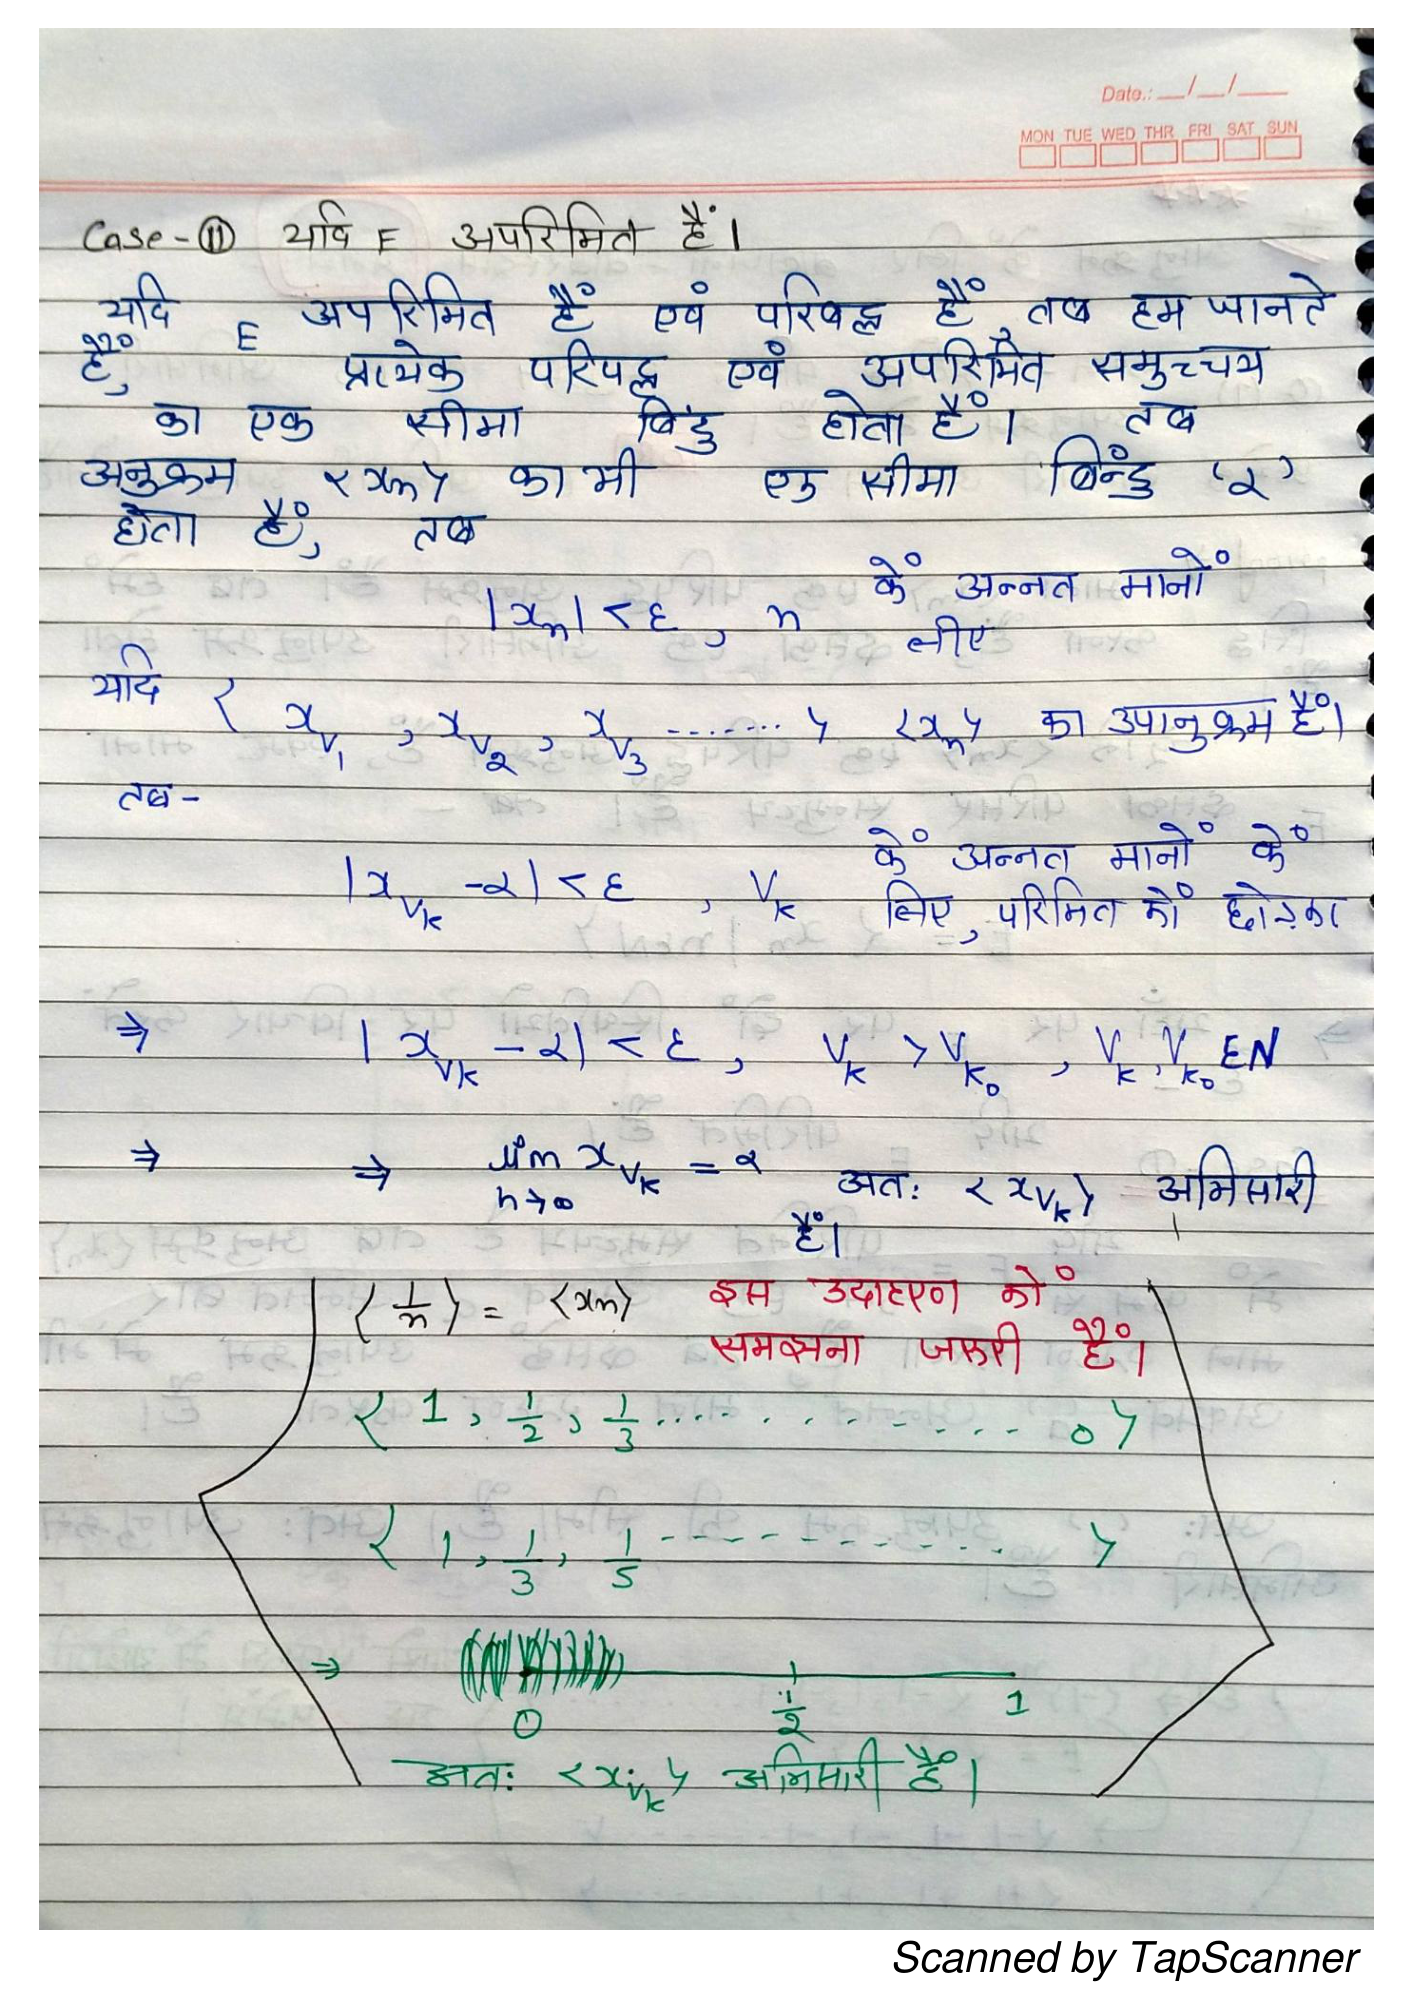 Date.: __/__/___
MON TUE WED THR FRI SAT SUN
Case-⑪ यदि E अपरिमित हैं।
यदि E अपरिमित हैं एवं परिबद्ध हैं, तब हम जानते
हैं, प्रत्येक परिपद्ध एवं अपरिमित समुच्चय
का एक सीमा बिंदु होता हैं। तब
अनुक्रम <xn> का भी एक सीमा बिन्दु 'α'
होता हैं, तब
|xn| < ε, n कें अन्नत मानों
लीए
यदि < x_v1, x_v2, x_v3 ....... > <xn> का उपानुक्रम हैं।
तब-
|x_vk - α| < ε , vk कें अन्नत मानों कें
लिए, परिमित कों छोड़का
⇒ |x_vk - α| < ε, vk > vk0 , vk, vk0 ∈ N
⇒ ⇒ lim n→∞ x_vk = α अतः <x_vk> अभिसारी
हैं।
<1/n> = <xn> इस उदाहरण कों
समझना जरूरी हैं।
< 1, 1/2, 1/3 ............... 0 >
< 1, 1/3, 1/5 ------------- >
⇒ 0 1/2 1
अतः <x_vk> अभिसारी हैं।
Scanned by TapScanner